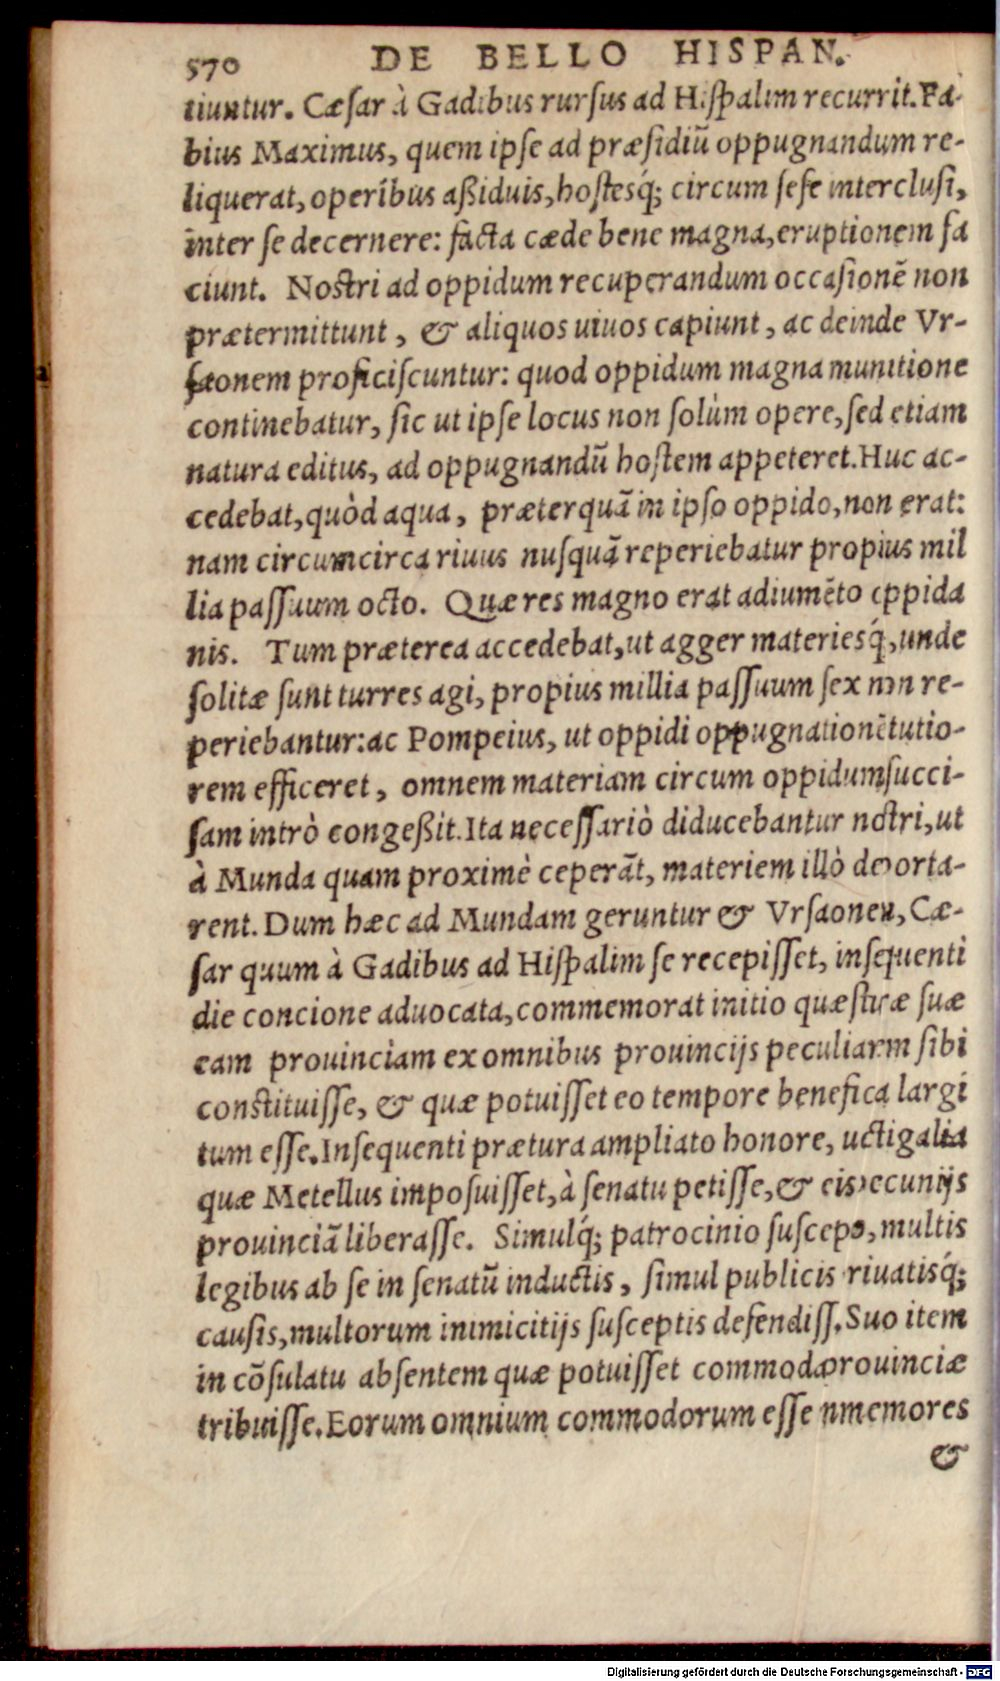 570 DE BELLO HISPAN.
tiuntur. Cæſar à Gadibus rurſus ad Hiſpalim recurrit. Fa-
bius Maximus, quem ipſe ad præſidiū oppugnandum re-
liquerat, operibus aßiduis, hoſtesq́; circum ſeſe intercluſi,
inter ſe decernere: facta cæde bene magna, eruptionem fa
ciunt. Noſtri ad oppidum recuperandum occaſionē non
prætermittunt, & aliquos uiuos capiunt, ac deinde Vr-
ſaonem proficiſcuntur: quod oppidum magna munitione
continebatur, ſic ut ipſe locus non ſolùm opere, ſed etiam
natura editus, ad oppugnandū hoſtem appeteret. Huc ac-
cedebat, quòd aqua, præterquā in ipſo oppido, non erat:
nam circumcirca riuus nuſquā reperiebatur propius mil
lia paſſuum octo. Quæ res magno erat adiumēto oppida
nis. Tum præterea accedebat, ut agger materiesq́, unde
ſolitæ ſunt turres agi, propius millia paſſuum ſex non re-
periebantur: ac Pompeius, ut oppidi oppugnationē tutio-
rem efficeret, omnem materiam circum oppidum ſucci-
ſam intrò congeßit. Ita neceſſariò diducebantur noſtri, ut
à Munda quam proximè ceperāt, materiem illò deporta-
rent. Dum hæc ad Mundam geruntur & Vrſaonen, Cæ-
ſar quum à Gadibus ad Hiſpalim ſe recepiſſet, inſequenti
die concione aduocata, commemorat initio quæſturæ ſuæ
eam prouinciam ex omnibus prouincijs peculiarem ſibi
conſtituiſſe, & quæ potuiſſet eo tempore benefica largi
tum eſſe. Inſequenti prætura ampliato honore, uectigalia
quæ Metellus impoſuiſſet, à ſenatu petiſſe, & eis pecunijs
prouinciā liberaſſe. Simulq́; patrocinio ſuſcepto, multis
legibus ab ſe in ſenatū inductis, ſimul publicis priuatisq́;
cauſis, multorum inimicitijs ſuſceptis defendiſſe. Suo item
in cōſulatu abſentem quæ potuiſſet commoda prouinciæ
tribuiſſe. Eorum omnium commodorum eſſe immemores
&
Digitalisierung gefördert durch die Deutsche Forschungsgemeinschaft - DFG